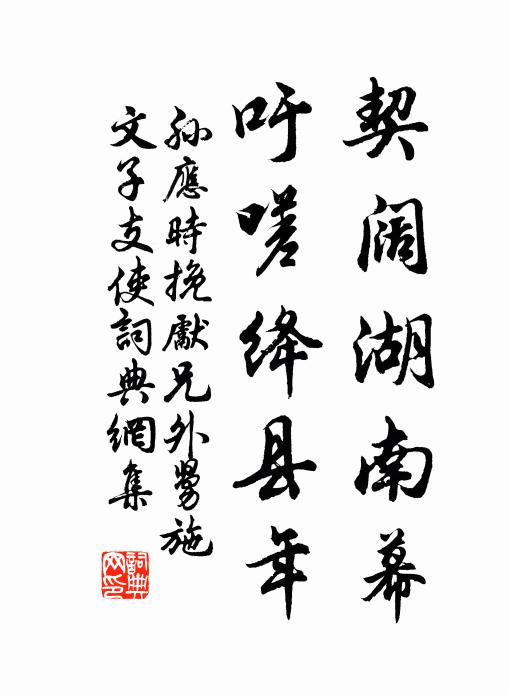 契阔湖南幕
吁嗟绛县年
孙應時挽獻兄外舅施
文子支使詞典網集
詞典网印